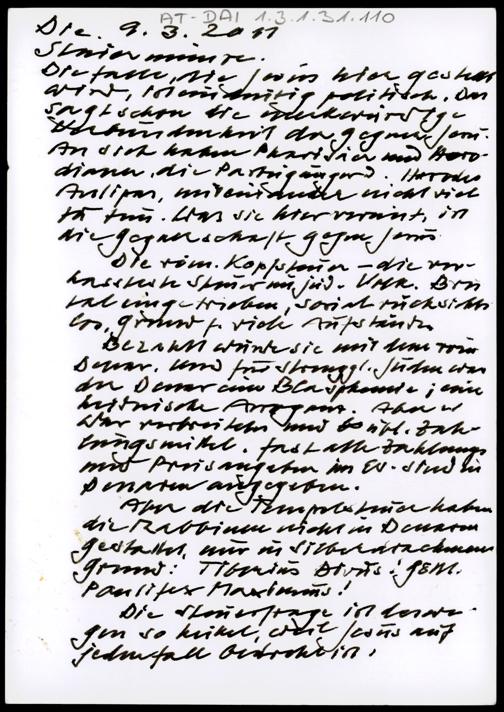 AT-DAI 1.3.1.31.110
Die. 9. 3. 2011
Steuermünze.
Die Falle, die Jesus hier gestellt
wird, ist eindeutig politisch. Das
sagt schon die merkwürdige
Verbundenheit der Gegner Jesu.
An sich haben Pharisäer und Hero-
dianer, die Parteigänger d. Herodes
Antipas, miteinander nicht viel
zu tun. Was sie hier vereint, ist
die Gegnerschaft gegen Jesus.
Die röm. Kopfsteuer – die ver-
hassteste Steuer im jüd. Volk. Bru-
tal eingetrieben, sozial rücksichts-
los, Grund f. viele Aufstände
Bezahlt wurde sie mit dem röm
Denar. Und für strenggl. Juden war
der Denar eine Blasphemie; eine
heidnische Arroganz. Aber er
war verbreitetes und übl. Zah-
lungsmittel. Fast alle Zahlungs-
und Preisangaben im Ev. sind in
Denaren angegeben.
Aber die Tempelsteuer haben
die Rabbinen nicht in Denaren
gestattet, nur in Silberdrachmen
Grund: Tiberius Divus! Gen.
Pontifex Maximus!
Die Steuerfrage ist deswe-
gen so heikel, weil Jesus auf
jedenfall bedroht ist.